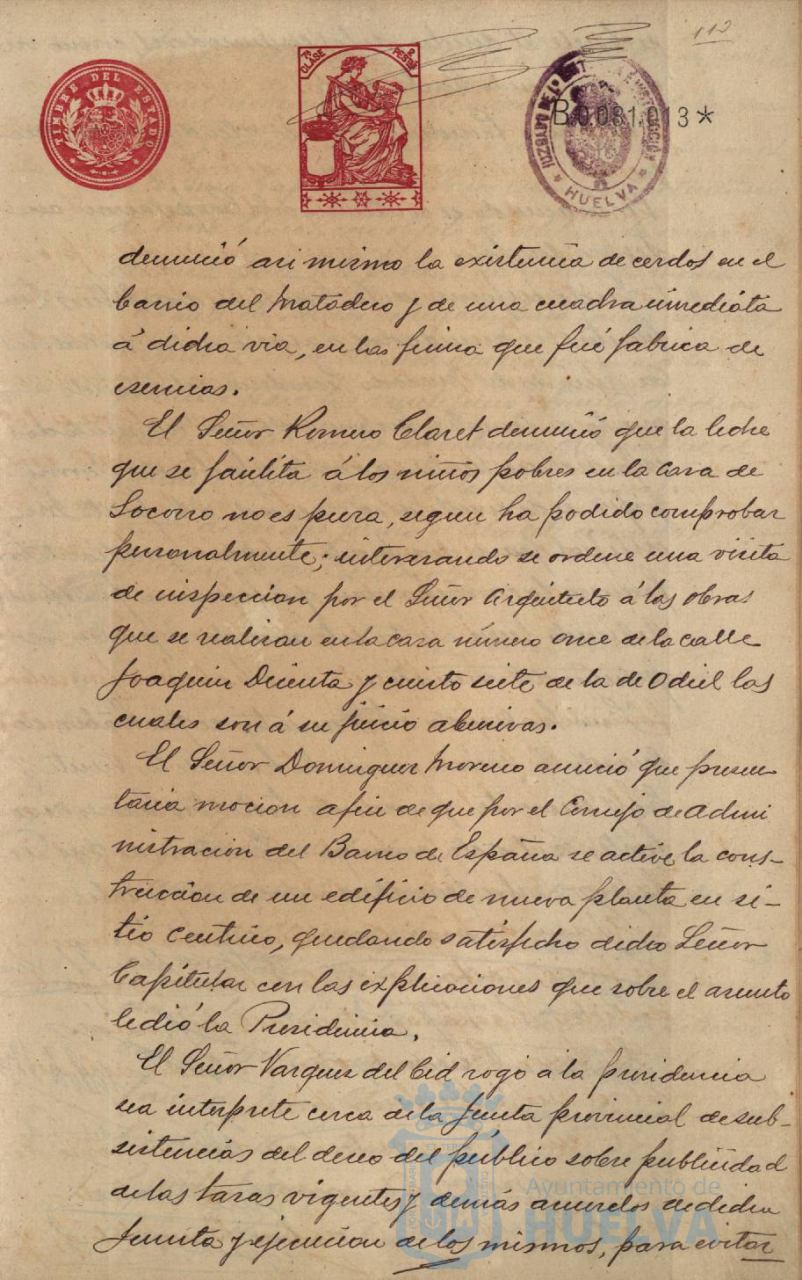 112
TIMBRE DEL ESTADO
7ª CLASE 2 PESETAS
JUZGADO DE 1ª INSTANCIA E INSTRUCCIÓN
HUELVA
B.0.081.013*
denunció asi mismo la existencia de cerdos en el
barrio del Matadero y de una cuadra inmediata
á dicha via, en las finca que fué fabrica de
esencias.
El Señor Romero Claret denunció que la leche
que se facilita á los niños pobres en la Casa de
Socorro no es pura, segun ha podido comprobar
personalmente; interesando se ordene una visita
de inspeccion por el Señor Arquitecto á las obras
que se realizan en la casa número once de la calle
Joaquin Dicenta y ciento siete de la de Odiel las
cuales son á su juicio abusivas.
El Señor Dominguez Moreno anunció que presen
taria mocion afin de que por el Consejo de Admi
nistracion del Banco de España se active la cons-
truccion de un edificio de nueva planta en si-
tio centrico, quedando satisfecho dicho Señor
Capitular con las explicaciones que sobre el asunto
le dió la Presidencia.
El Señor Vazquez del Cid rogó á la presidencia
sea interprete cerca de la Junta provincial de sub-
sistencias del deseo del público sobre publicidad
de las tasas vigentes y demás acuerdos de dicha
Junta y ejecucion de los mismos, para evitar
Ayuntamiento de
HUELVA